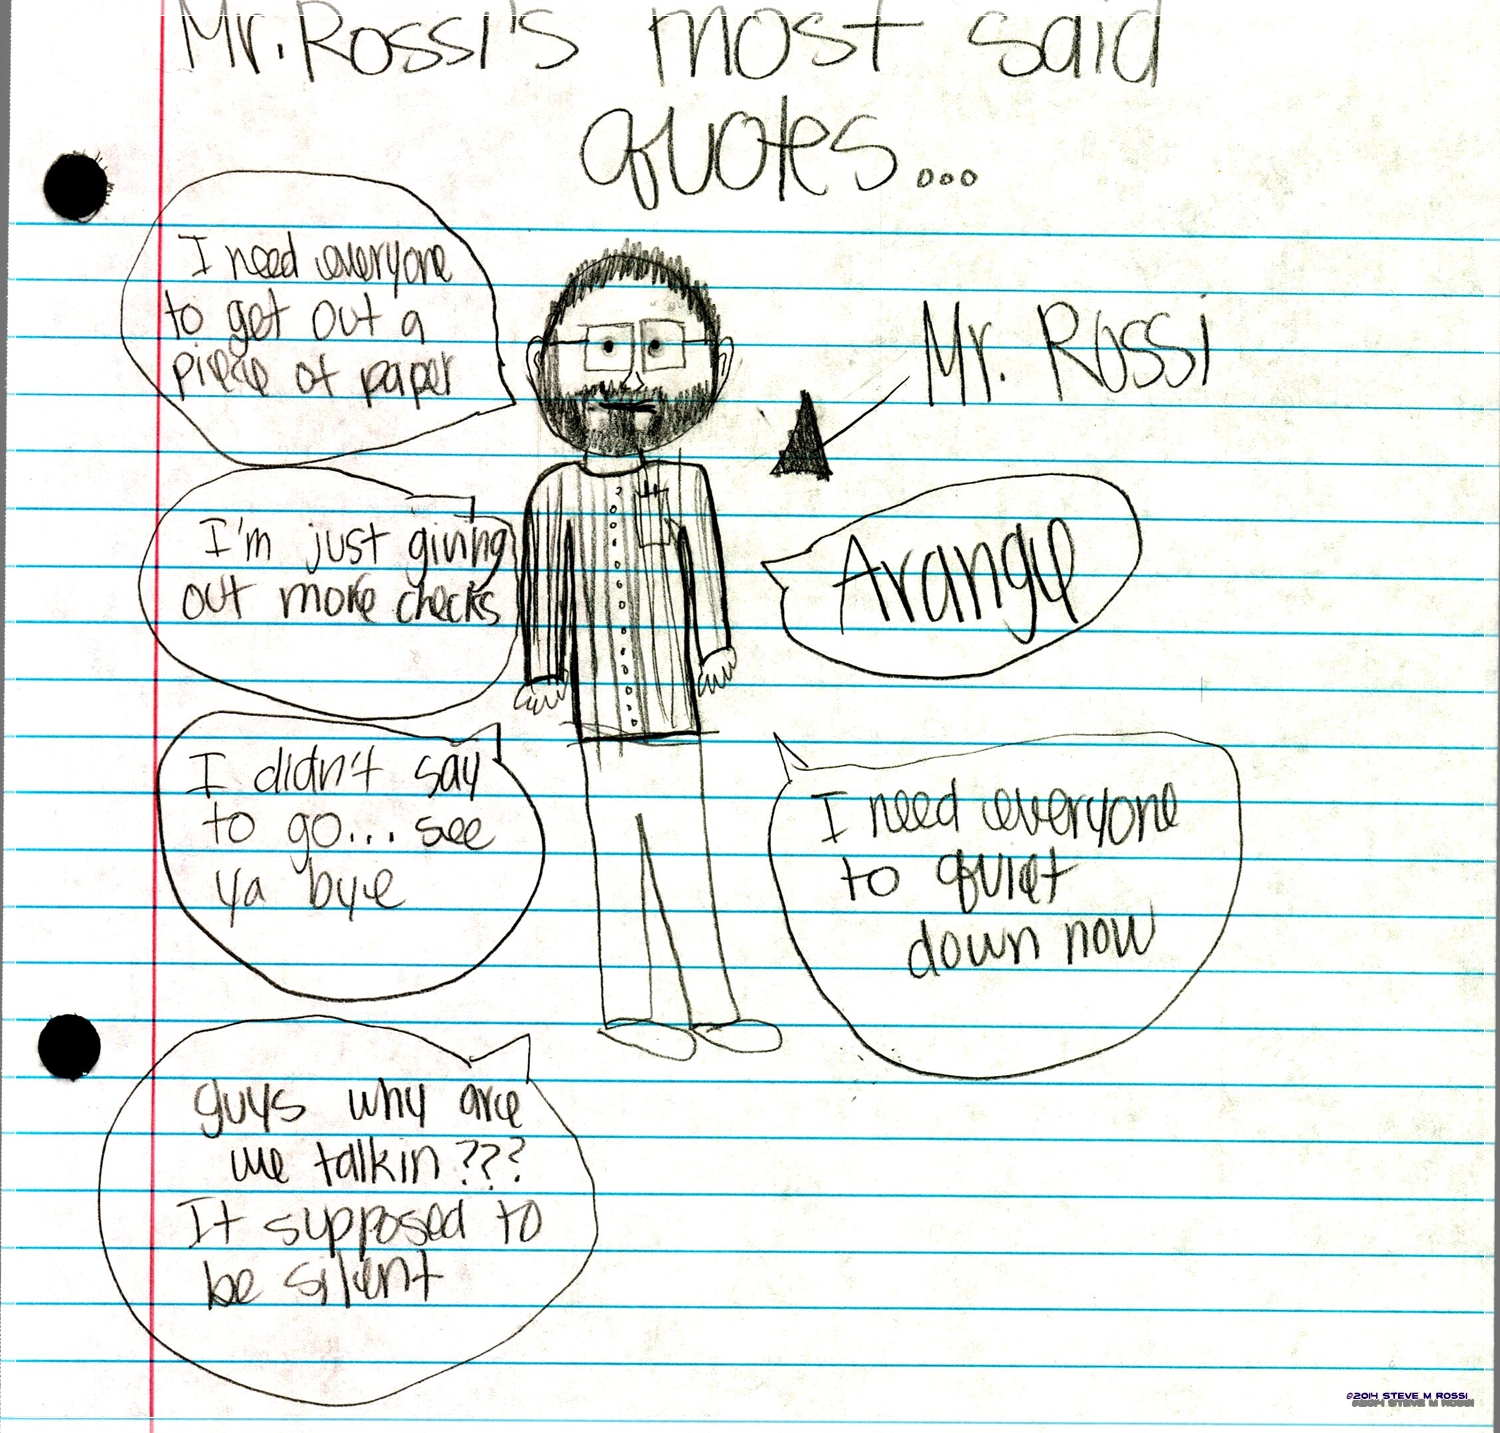 Mr. Rossi's most said
quotes...
I need everyone
to get out a
piece of paper
Mr. Rossi
I'm just giving
out more checks
Arange
I didn't say
to go... see
ya bye
I need everyone
to quiet
down now
guys why are
we talkin???
It supposed to
be silent
©2014 STEVE M ROSSI